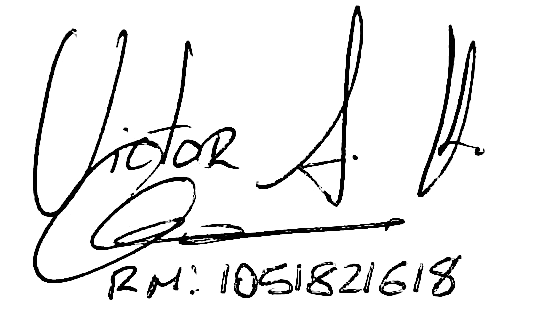 Victor S. H.
RM: 1051821618